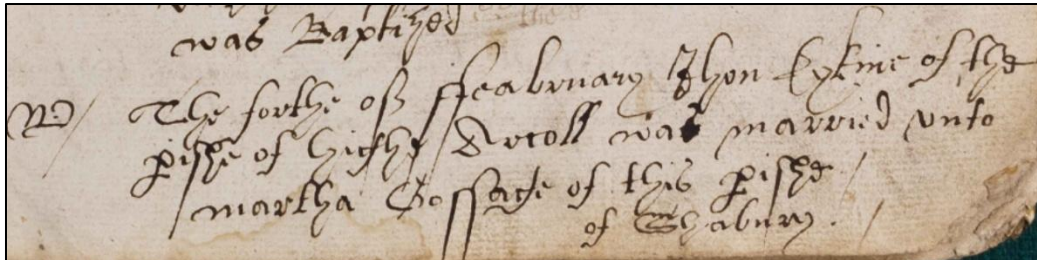 was Baptized
The forthe off ffeabruary Jhon Eykine of the
pishe of highe Arcoll was married vnto
martha Gossage of this pishe
of Shabury.